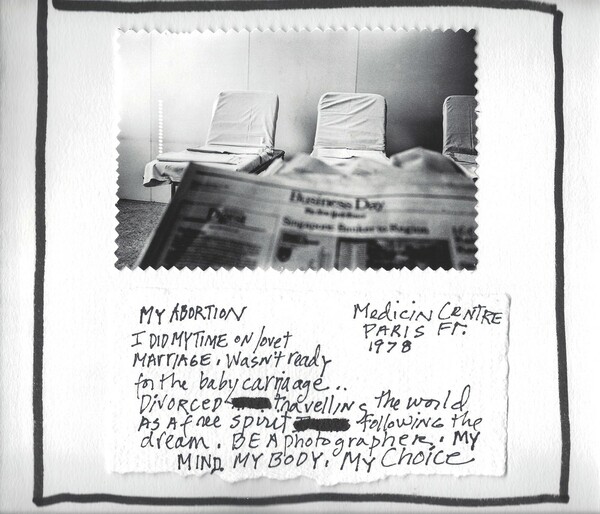 Business Day
MY ABORTION
Medicin CENTRE
PARIS Fr.
1978
I DID MY TIME ON lovet
MARRIAGE. Wasn't ready
for the baby carriaage..
DIVORCED travelling the world
AS A free spirit following the
dream. BE A photographer. MY
MIND MY BODY. My Choice